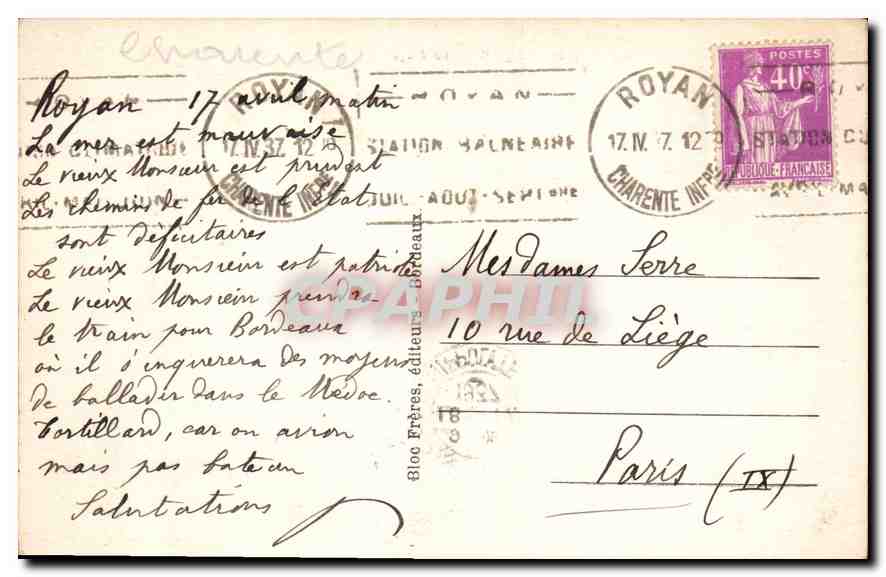 Charente
Royan 17 avril matin
La mer est mauvaise
Le vieux Monsieur est prudent
Les chemins de fer de l'Etat
sont déficitaires
Le vieux Monsieur est patriote
Le vieux Monsieur prendra
le train pour Bordeaux
où il s'inquerera des moyens
de ballader dans le Médoc.
Tortillard, car ou avion
mais pas bateau
Salutations
ROYAN
17.IV.37. 12
CHARENTE INFRE
ROYAN
STATION BALNEAIRE
JUIL-AOUT-SEPTBRE
ROYAN
17.IV.37. 12
CHARENTE INFRE
STATION
POSTES
40c
REPUBLIQUE-FRANCAISE
Bloc Frères, éditeurs - Bordeaux
CPAPHIL
Mesdames Serre
10 rue de Liège
Paris (IX)